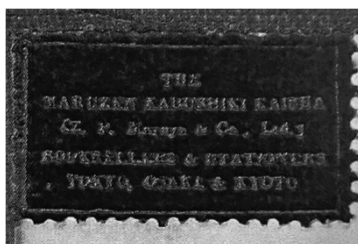 THE
MARUZEN KABUSHIKI KAISHA
(Z. P. Maruya & Co., Ltd.)
BOOKSELLERS & STATIONERS
TOKYO, OSAKA & KYOTO